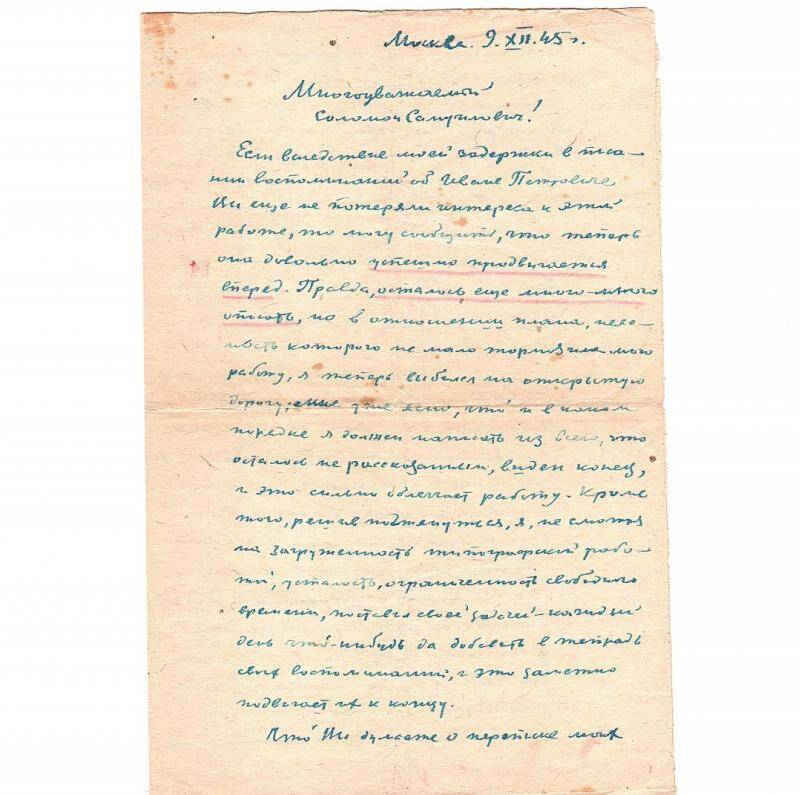 Москва. 9.XII.45 г.
Многоуважаемый
Соломон Самуилович!
Если вследствие моей задержки в писа-
нии воспоминаний об Иване Петровиче
Вы еще не потеряли интереса к этой
работе, то могу сообщить, что теперь
она довольно успешно продвигается
вперед. Правда, осталось еще много-много
описать, но в отношении плана, неяс-
ность которого не мало тормозила мою
работу, я теперь выбился на открытую
дорогу, мне уже ясно, что и в каком
порядке я должен написать из всего, что
осталось не рассказанным, виден конец,
и это сильно облегчает работу. Кроме
того, решив подтянуться, я, не смотря
на загруженность типографской рабо-
той, усталость, ограниченность свободного
времени, поставил своей задачей - каждый
день что-нибудь да добавить в тетрадь
своих воспоминаний, и это заметно
подвигает их к концу.
Что Вы думаете о переписке моих